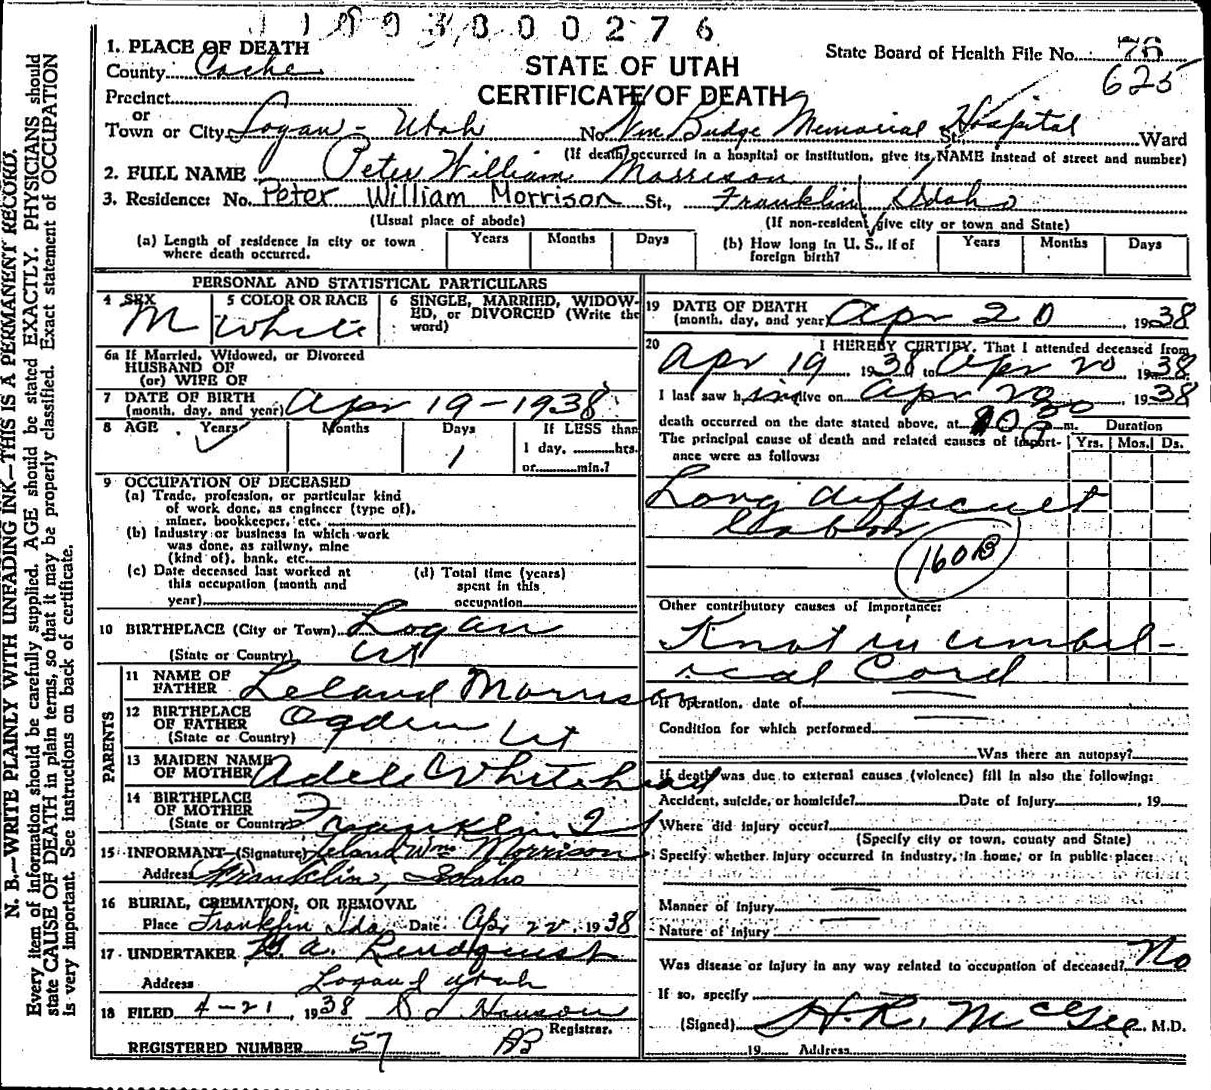 1 1 9 0 3 8 0 0 0 2 7 6
1. PLACE OF DEATH
County Cache
Precinct
or
Town or City Logan - Utah No. Wm Budge Memorial Hospital St. Ward
STATE OF UTAH
CERTIFICATE OF DEATH
State Board of Health File No. 76
625
(If death occurred in a hospital or institution, give its NAME instead of street and number)
2. FULL NAME Peter William Morrison
3. Residence: No. Peter William Morrison St., Franklin, Idaho
(Usual place of abode) (If non-resident give city or town and State)
(a) Length of residence in city or town where death occurred. Years Months Days
(b) How long in U. S., if of foreign birth? Years Months Days
PERSONAL AND STATISTICAL PARTICULARS
4 SEX M
5 COLOR OR RACE White
6 SINGLE, MARRIED, WIDOWED, or DIVORCED (Write the word)
6a If Married, Widowed, or Divorced
HUSBAND OF
(or) WIFE OF
7 DATE OF BIRTH
(month, day, and year) Apr 19-1938
8 AGE Years Months Days 1 If LESS than
1 day, hrs.
or min.?
9 OCCUPATION OF DECEASED
(a) Trade, profession, or particular kind
of work done, as engineer (type of),
miner, bookkeeper, etc.
(b) Industry or business in which work
was done, as railway, mine
(kind of), bank, etc.
(c) Date deceased last worked at
this occupation (month and
year)
(d) Total time (years)
spent in this
occupation
10 BIRTHPLACE (City or Town) Logan
(State or Country) Ut
PARENTS
11 NAME OF
FATHER Leland Morrison
12 BIRTHPLACE
OF FATHER Ogden
(State or Country) Ut
13 MAIDEN NAME
OF MOTHER Adele Whitehead
14 BIRTHPLACE
OF MOTHER
(State or Country) Franklin, Id
15 INFORMANT (Signature) Leland Wm Morrison
Address Franklin, Idaho
16 BURIAL, CREMATION, OR REMOVAL
Place Franklin Ida Date Apr 22, 1938
17 UNDERTAKER W. A. Lindquist
Address Logan Utah
18 FILED 4-21, 1938
Registrar.
REGISTERED NUMBER 57
19 DATE OF DEATH
(month, day, and year) Apr 20, 1938
20 I HEREBY CERTIFY, That I attended deceased from
Apr 19 1938 to Apr 20 1938
I last saw h im alive on Apr 20 1938
death occurred on the date stated above, at m. Duration
The principal cause of death and related causes of importance were as follows: Yrs. Mos. Ds.
Long difficult
labor
160B
Other contributory causes of importance:
Knot in umbil-
ical Cord
If operation, date of
Condition for which performed
Was there an autopsy?
If death was due to external causes (violence) fill in also the following:
Accident, suicide, or homicide? Date of Injury 19
Where did injury occur?
(Specify city or town, county and State)
Specify whether injury occurred in industry, in home, or in public place:
Manner of Injury
Nature of Injury
Was disease or Injury in any way related to occupation of deceased? No
If so, specify
(Signed) H. R. McGee M.D.
19 Address
N. B.—WRITE PLAINLY WITH UNFADING INK—THIS IS A PERMANENT RECORD.
Every item of information should be carefully supplied. AGE should be stated EXACTLY. PHYSICIANS should
state CAUSE OF DEATH in plain terms, so that it may be properly classified. Exact statement of OCCUPATION
is very important. See instructions on back of certificate.